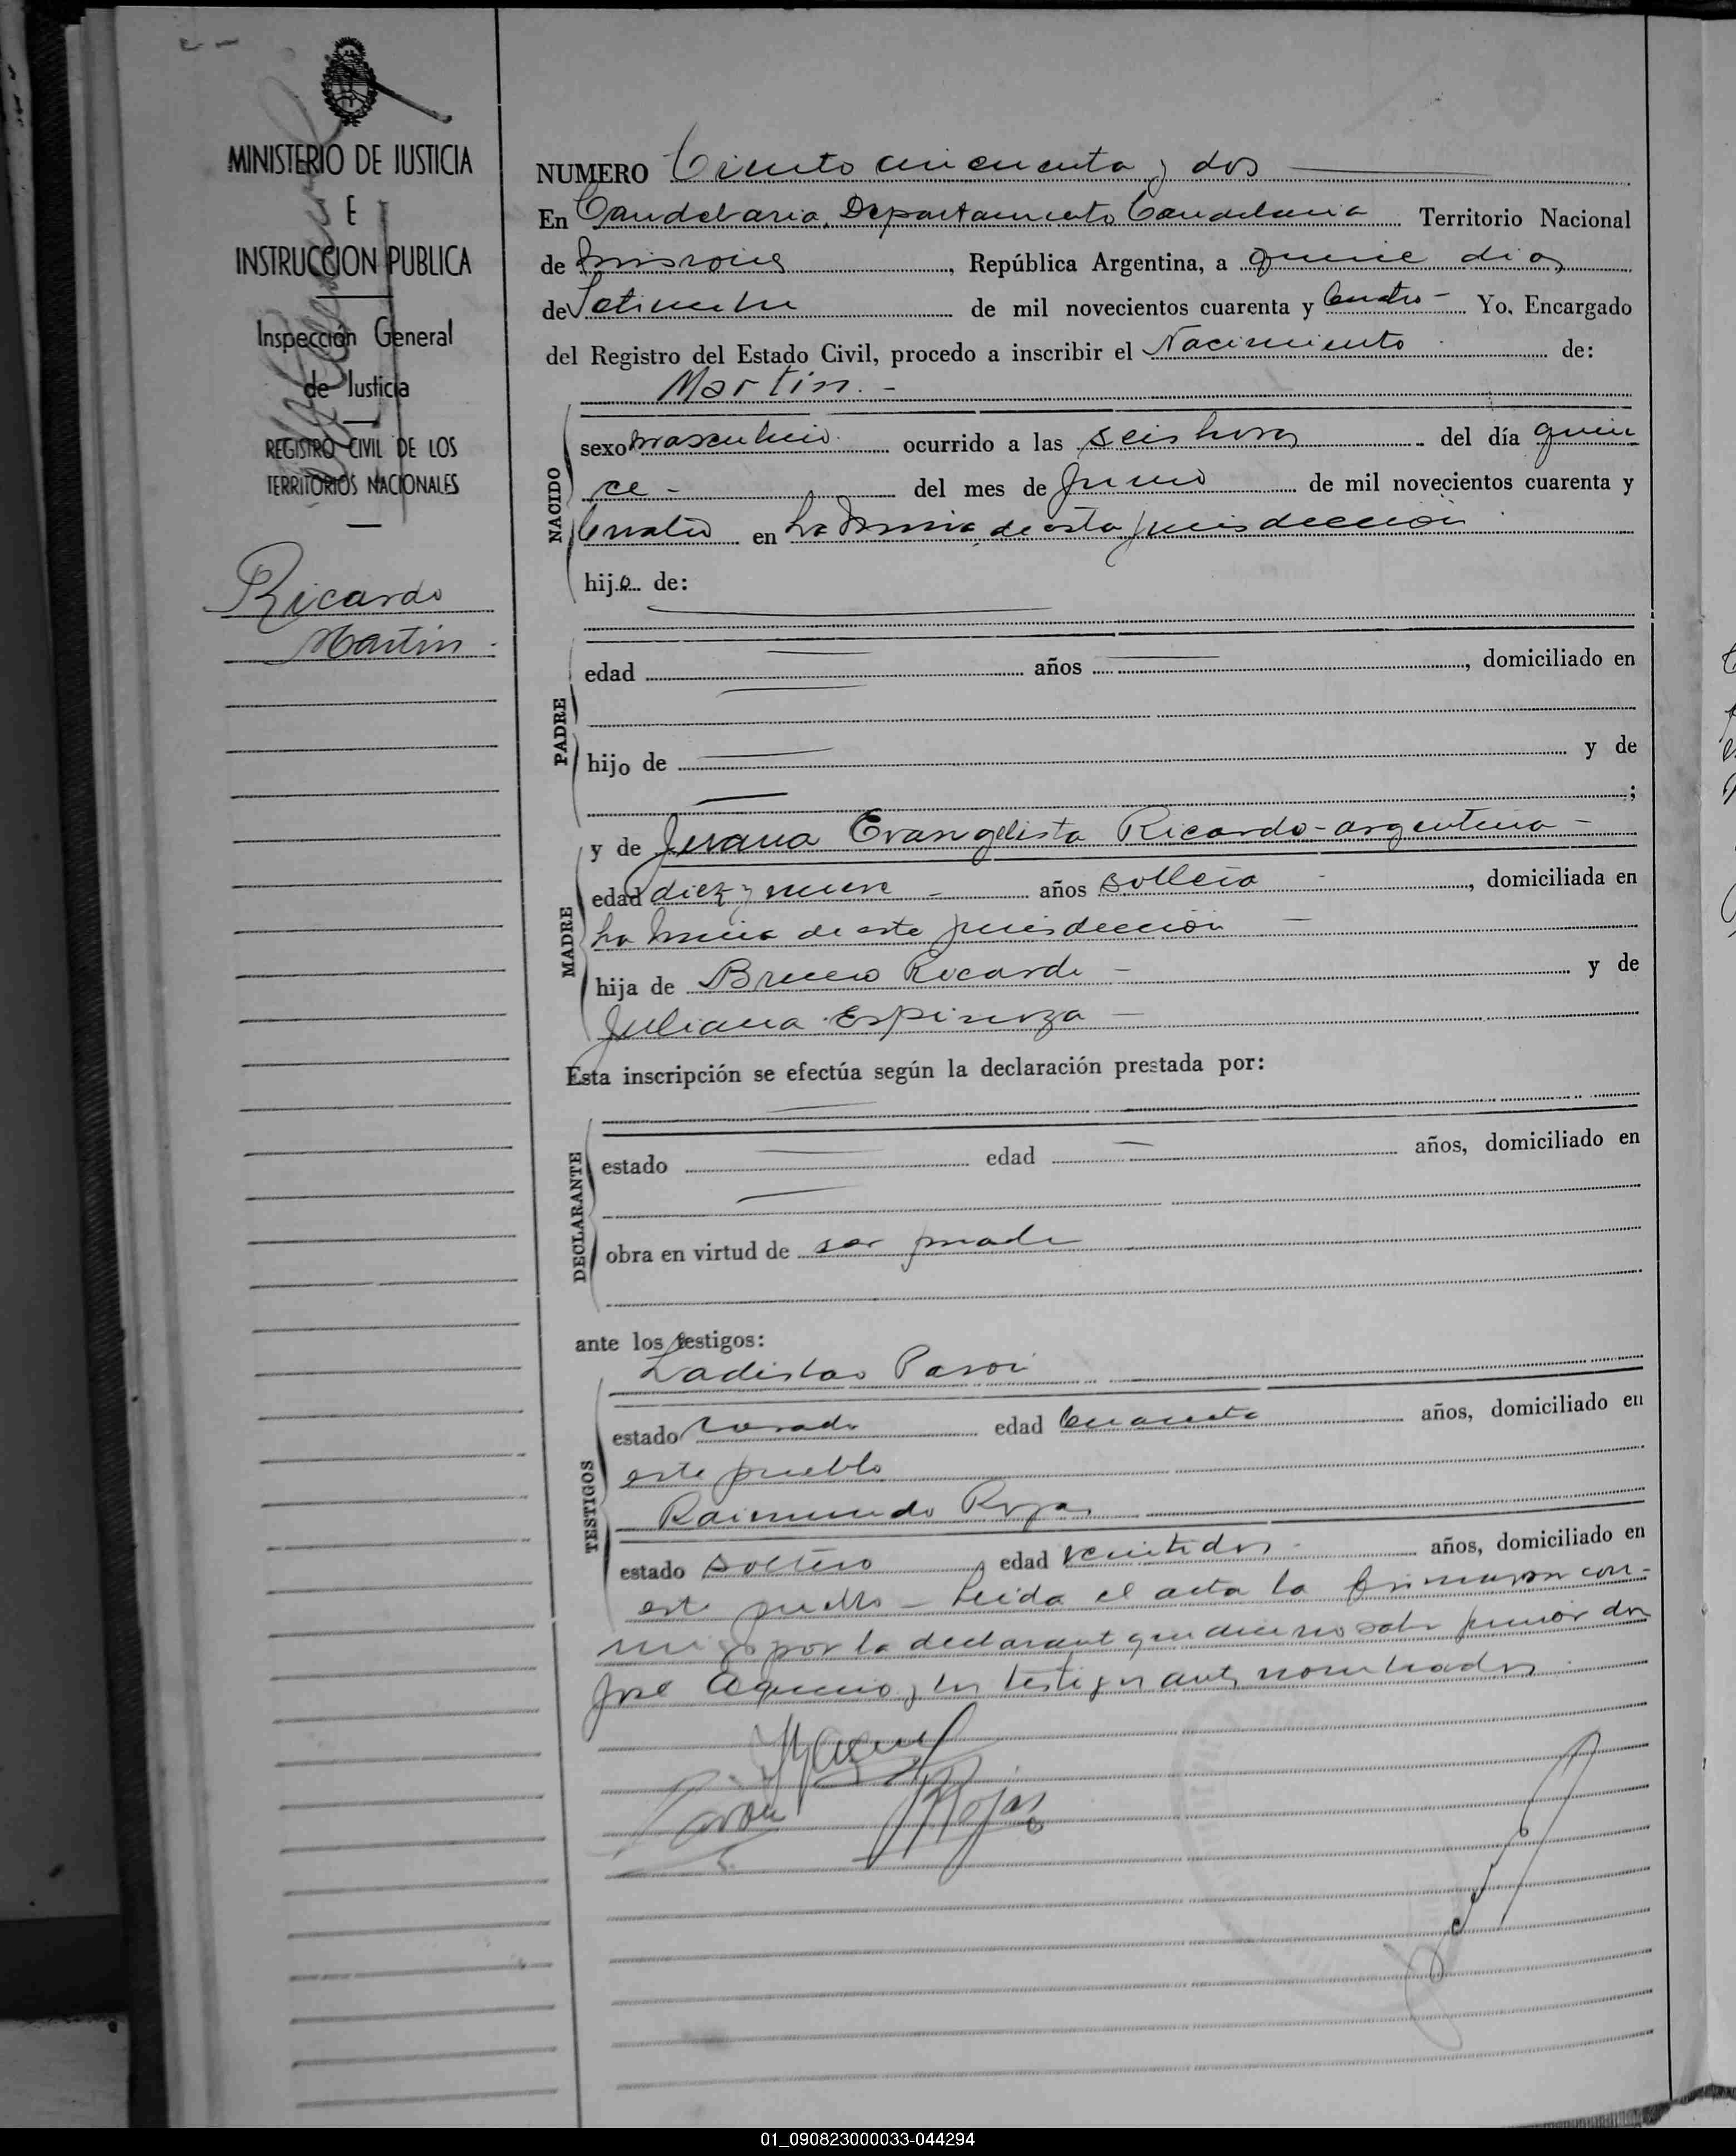 MINISTERIO DE JUSTICIA
E
INSTRUCCION PUBLICA
Inspección General
de Justicia
REGISTRO CIVIL DE LOS
TERRITORIOS NACIONALES
Ricardo
Martin
NUMERO Ciento cincuenta y dos
En Candelaria, Departamento Candelaria Territorio Nacional
de Misiones, República Argentina, a quince dias
de Setiembre de mil novecientos cuarenta y Cuatro - Yo, Encargado
del Registro del Estado Civil, procedo a inscribir el Nacimiento de:
Martin.-
NACIDO
sexo masculino ocurrido a las seis horas del día quin
ce - del mes de Junio de mil novecientos cuarenta y
Cuatro en La Mina de esta jurisdiccion
hijo de:
PADRE
edad años, domiciliado en
hijo de y de
;
MADRE
y de Juana Evangelista Ricardo - argentina -
edad diez y nueve - años soltera -, domiciliada en
La Mina de esta jurisdiccion -
hija de Bruno Ricardo - y de
Juliana Espinoza -
Esta inscripción se efectúa según la declaración prestada por:
DECLARANTE
estado edad años, domiciliado en
obra en virtud de ser madre
ante los testigos:
TESTIGOS
Ladislao
estado casado edad Cuarenta años, domiciliado en
este pueblo
Raimundo Rojas
estado soltero, edad veintidos - años, domiciliado en
este pueblo - Leida el acta la firmaron con-
migo por la declarante que dice no saber firmar don
José y los testigos antes nombrados
Rojas
01_090823000033-044294